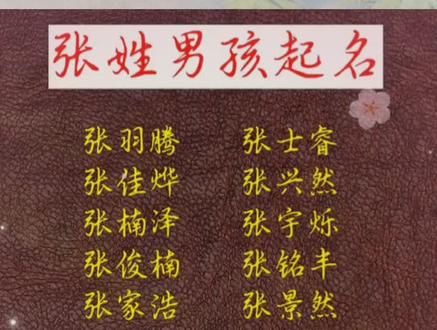 张姓男孩起名
张羽腾 张士睿
张佳烨 张兴然
张楠泽 张宇烁
张俊楠 张铭丰
张家浩 张景然